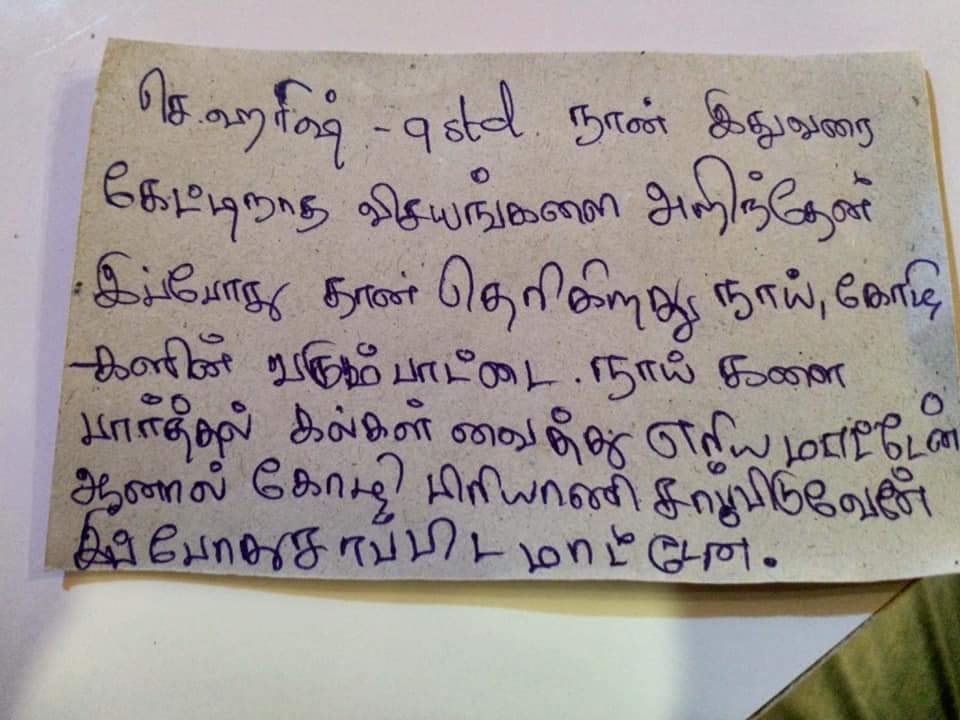 செ.ஹரிஷ் - 9 std. நான் இதுவரை
கேட்டிறாத விசயங்களை அறிந்தேன்
இப்போது தான் தெரிகிறது நாய், கோழி
-களின் பாட்டை. நாய் களை
பார்த்தல் கல்கள் வைத்து எறிய மாட்டேன்
ஆனால் கோழி பிரியாணி சாப்பிடுவேன்
இப் போது சாப்பிட மாட்டேன.